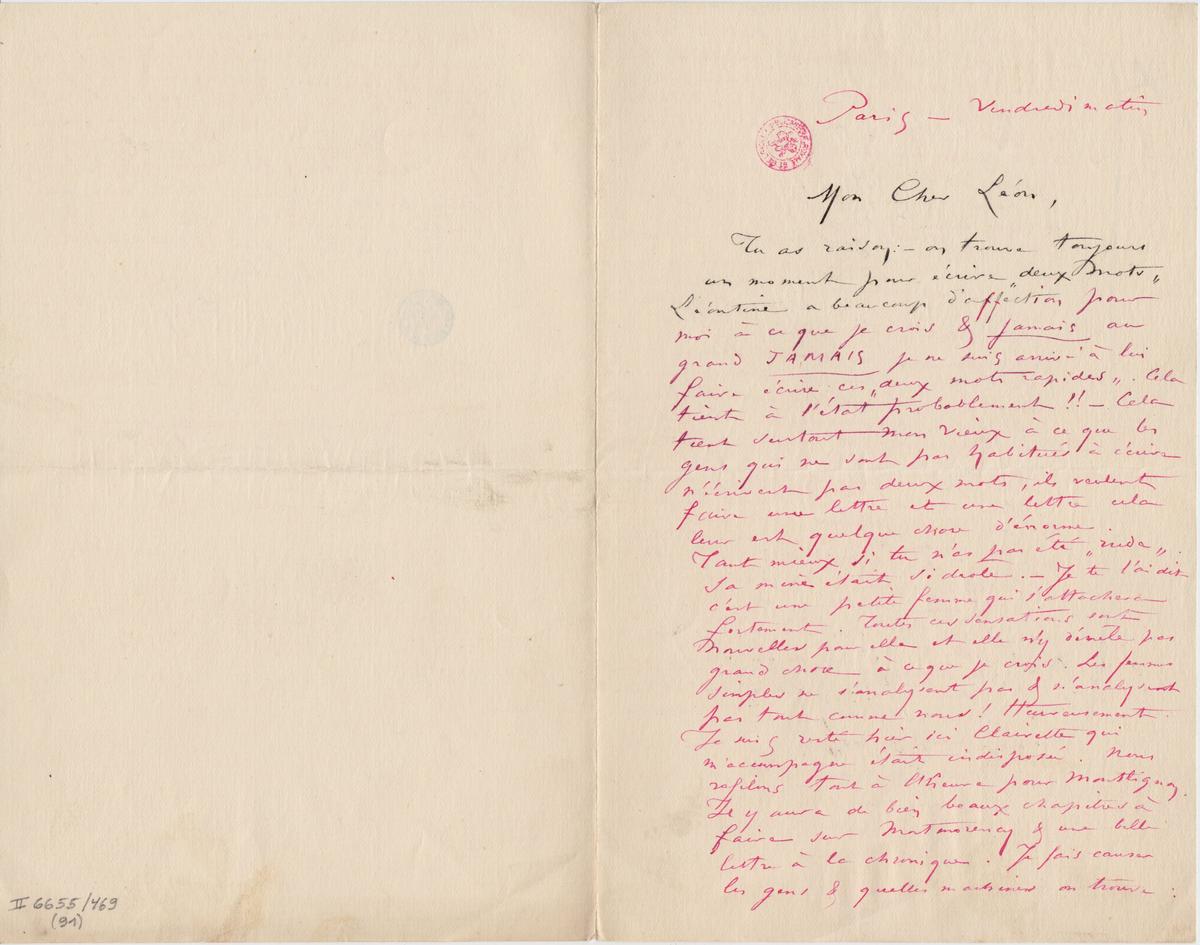 Paris — Vendredi matin
Mon Cher Léon,
Tu as raison : — on trouve toujours
un moment pour écrire „deux mots„
Léontine a beaucoup d'affection pour
moi à ce que je crois & jamais au
grand JAMAIS je ne suis arrivé à lui
faire écrire ces „deux mots rapides„. Cela
tient à l'état probablement !! — Cela
tient surtout mon vieux à ce que les
gens qui ne sont pas habitués à écrire
n'écrivent pas deux mots, ils veulent
faire une lettre et une lettre cela
leur est quelque chose d'énorme.
Tant mieux si tu n'as pas été „rude„.
Sa mine était si drole. — Je te l'ai dit
c'est une petite femme qui s'attachera
fortement. Toutes ces sensations sont
nouvelles pour elle et elle n'y démêle pas
grand chose à ce que je crois. Les femmes
simples ne s'analysent pas & n'analysent
pas tout comme nous ! Heureusement.
Je suis resté hier ici Clairette qui
m'accompagne était indisposée. Nous
refilons tout à l'heure pour Montlignon.
Il y aura de bien beaux chapitres à
faire sur Montmorency & une belle
lettre à la chronique. Je fais causer
les gens & quelles machines on trouve :
II 6655/469
(91)